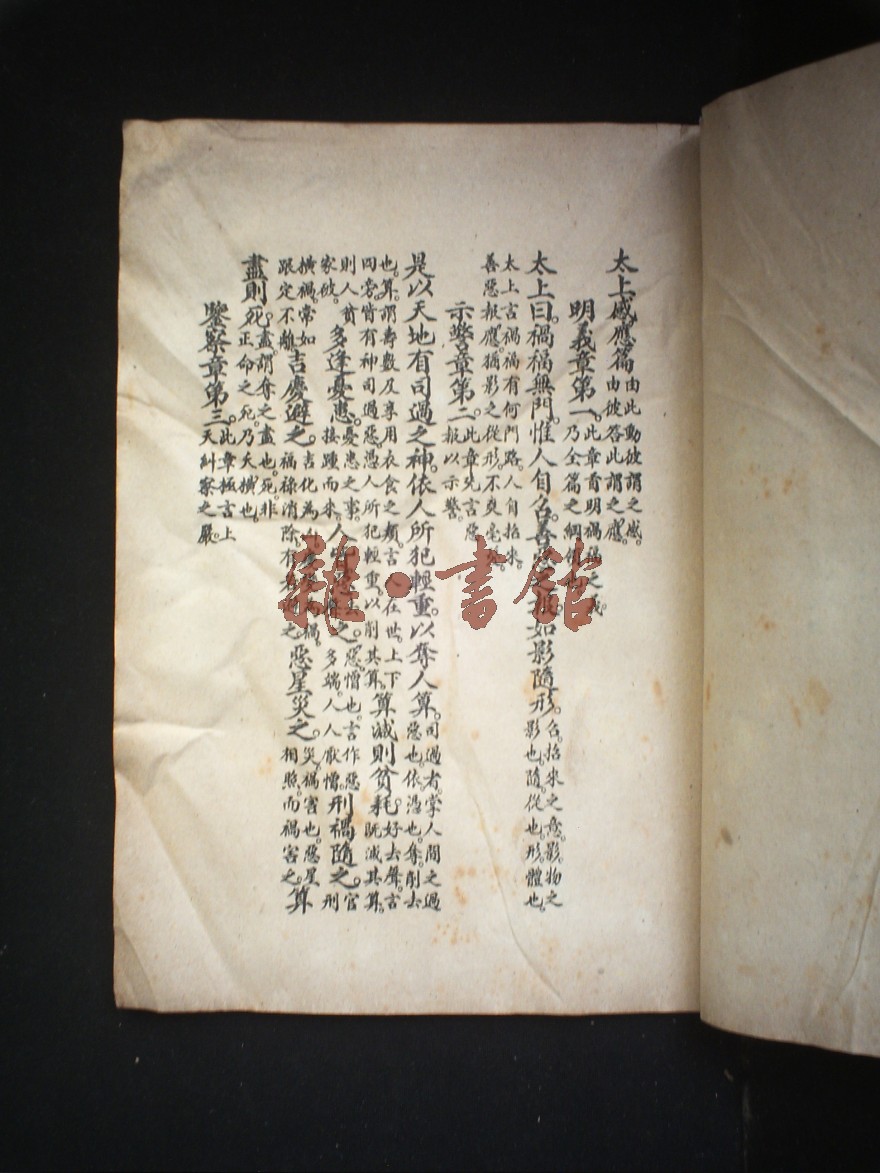 太上感應篇由此動彼謂之感。由彼答此謂之應。
明義章第一。此章首明禍福之 乃全篇之綱領
太上曰。禍福無門。惟人自召。善惡之報如影隨形。召。招來之意。影。物之影也。隨。從也。形。體也。
太上言禍福有何門路。人自招來。善惡報應。猶影之從形。不爽毫
示警章第二。此章先言惡報以示警。
是以天地有司過之神。依人所犯輕重。以奪人算。司過者。掌人間之過惡也。依。憑也。奪。削去
也。算。謂壽數及享用衣食之類。言人在世。上下四旁。皆有神司過惡。憑人所犯輕重。以削其算。算減則貧耗。好去聲。言既減其算。
則人貧家破。多逢憂患。憂患之事。接踵而來。人皆惡之。惡。憎也。言作惡多端。人人厭憎。刑禍隨之。官刑
橫禍。常如跟定不離吉慶避之。吉化為 禍。福祿消除。有 之惡星災之。災。禍害也。惡星相照。而禍害之。算
盡則死。盡。謂奪之盡也。死。非正命之死。乃夭橫也。
鑒察章第三。此章極言上天糾察之嚴。
雜·書館